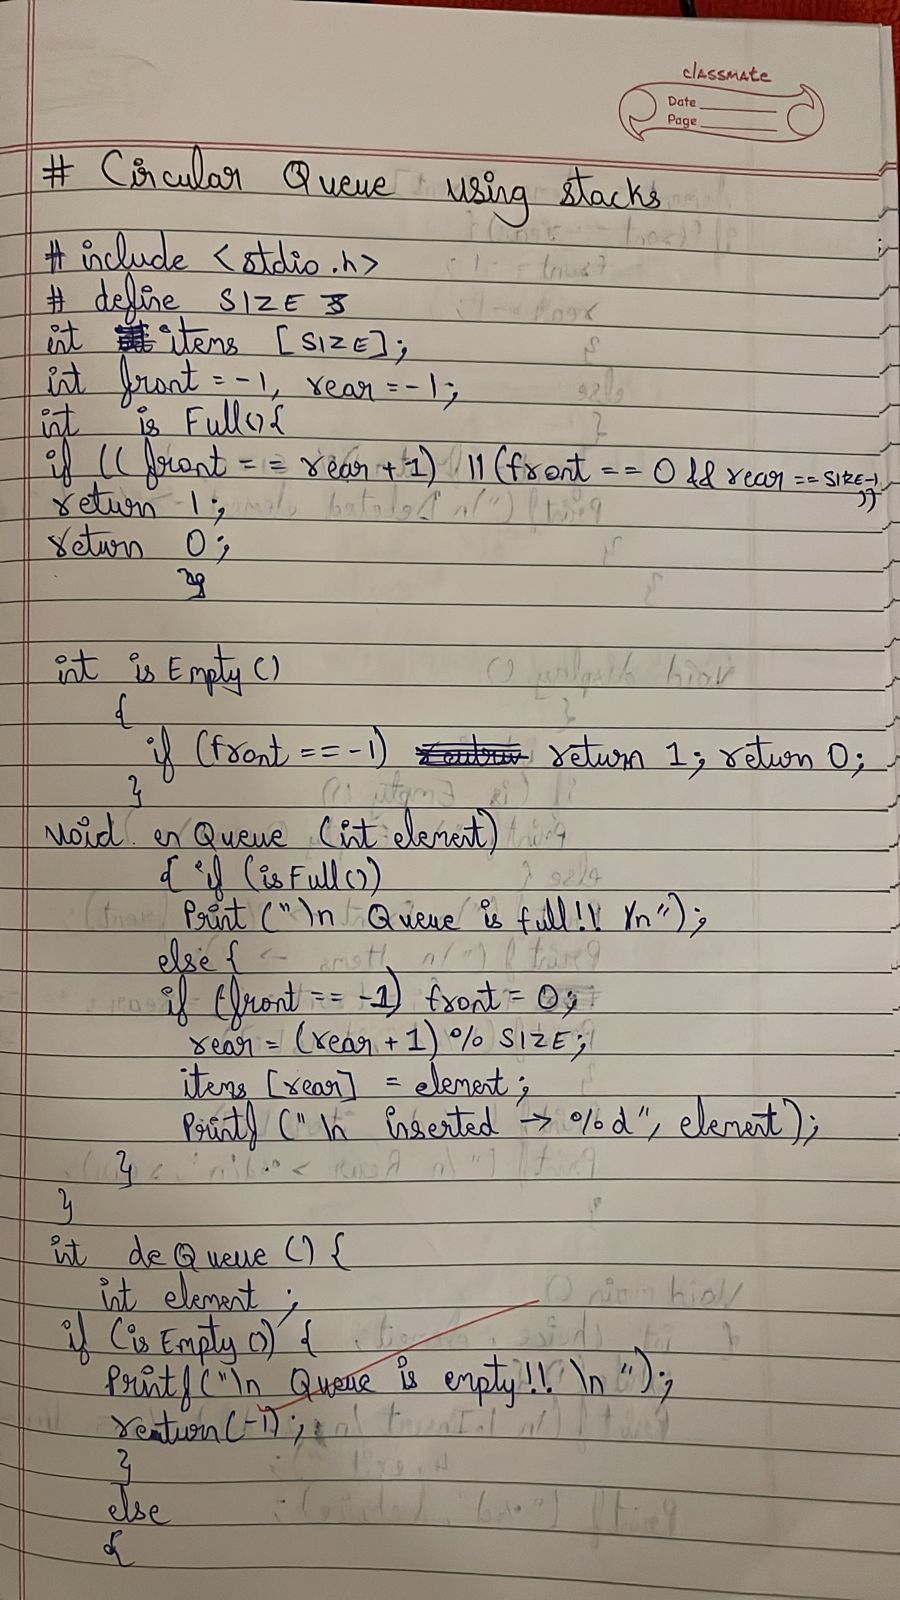 classmate
Date
Page
# Circular Queue using stacks
# include <stdio.h>
# define SIZE 5
int items [SIZE];
int front = -1, rear = -1;
int is Full() {
if (( front == rear + 1) || (front == 0 && rear == SIZE-1))
return 1;
return 0;
}
int is Empty ()
{
if (front == -1) return 1; return 0;
}
void en Queue (int element)
{ if (is Full ())
Print ("\n Queue is full!! \n");
else {
if (front == -1) front = 0;
rear = (rear + 1) % SIZE;
items [rear] = element;
Printf ("\n inserted → %d", element);
}
}
int de Queue () {
int element ;
if (is Empty ()) {
Printf ("\n Queue is empty!! \n ");
return (-1);
}
else
{